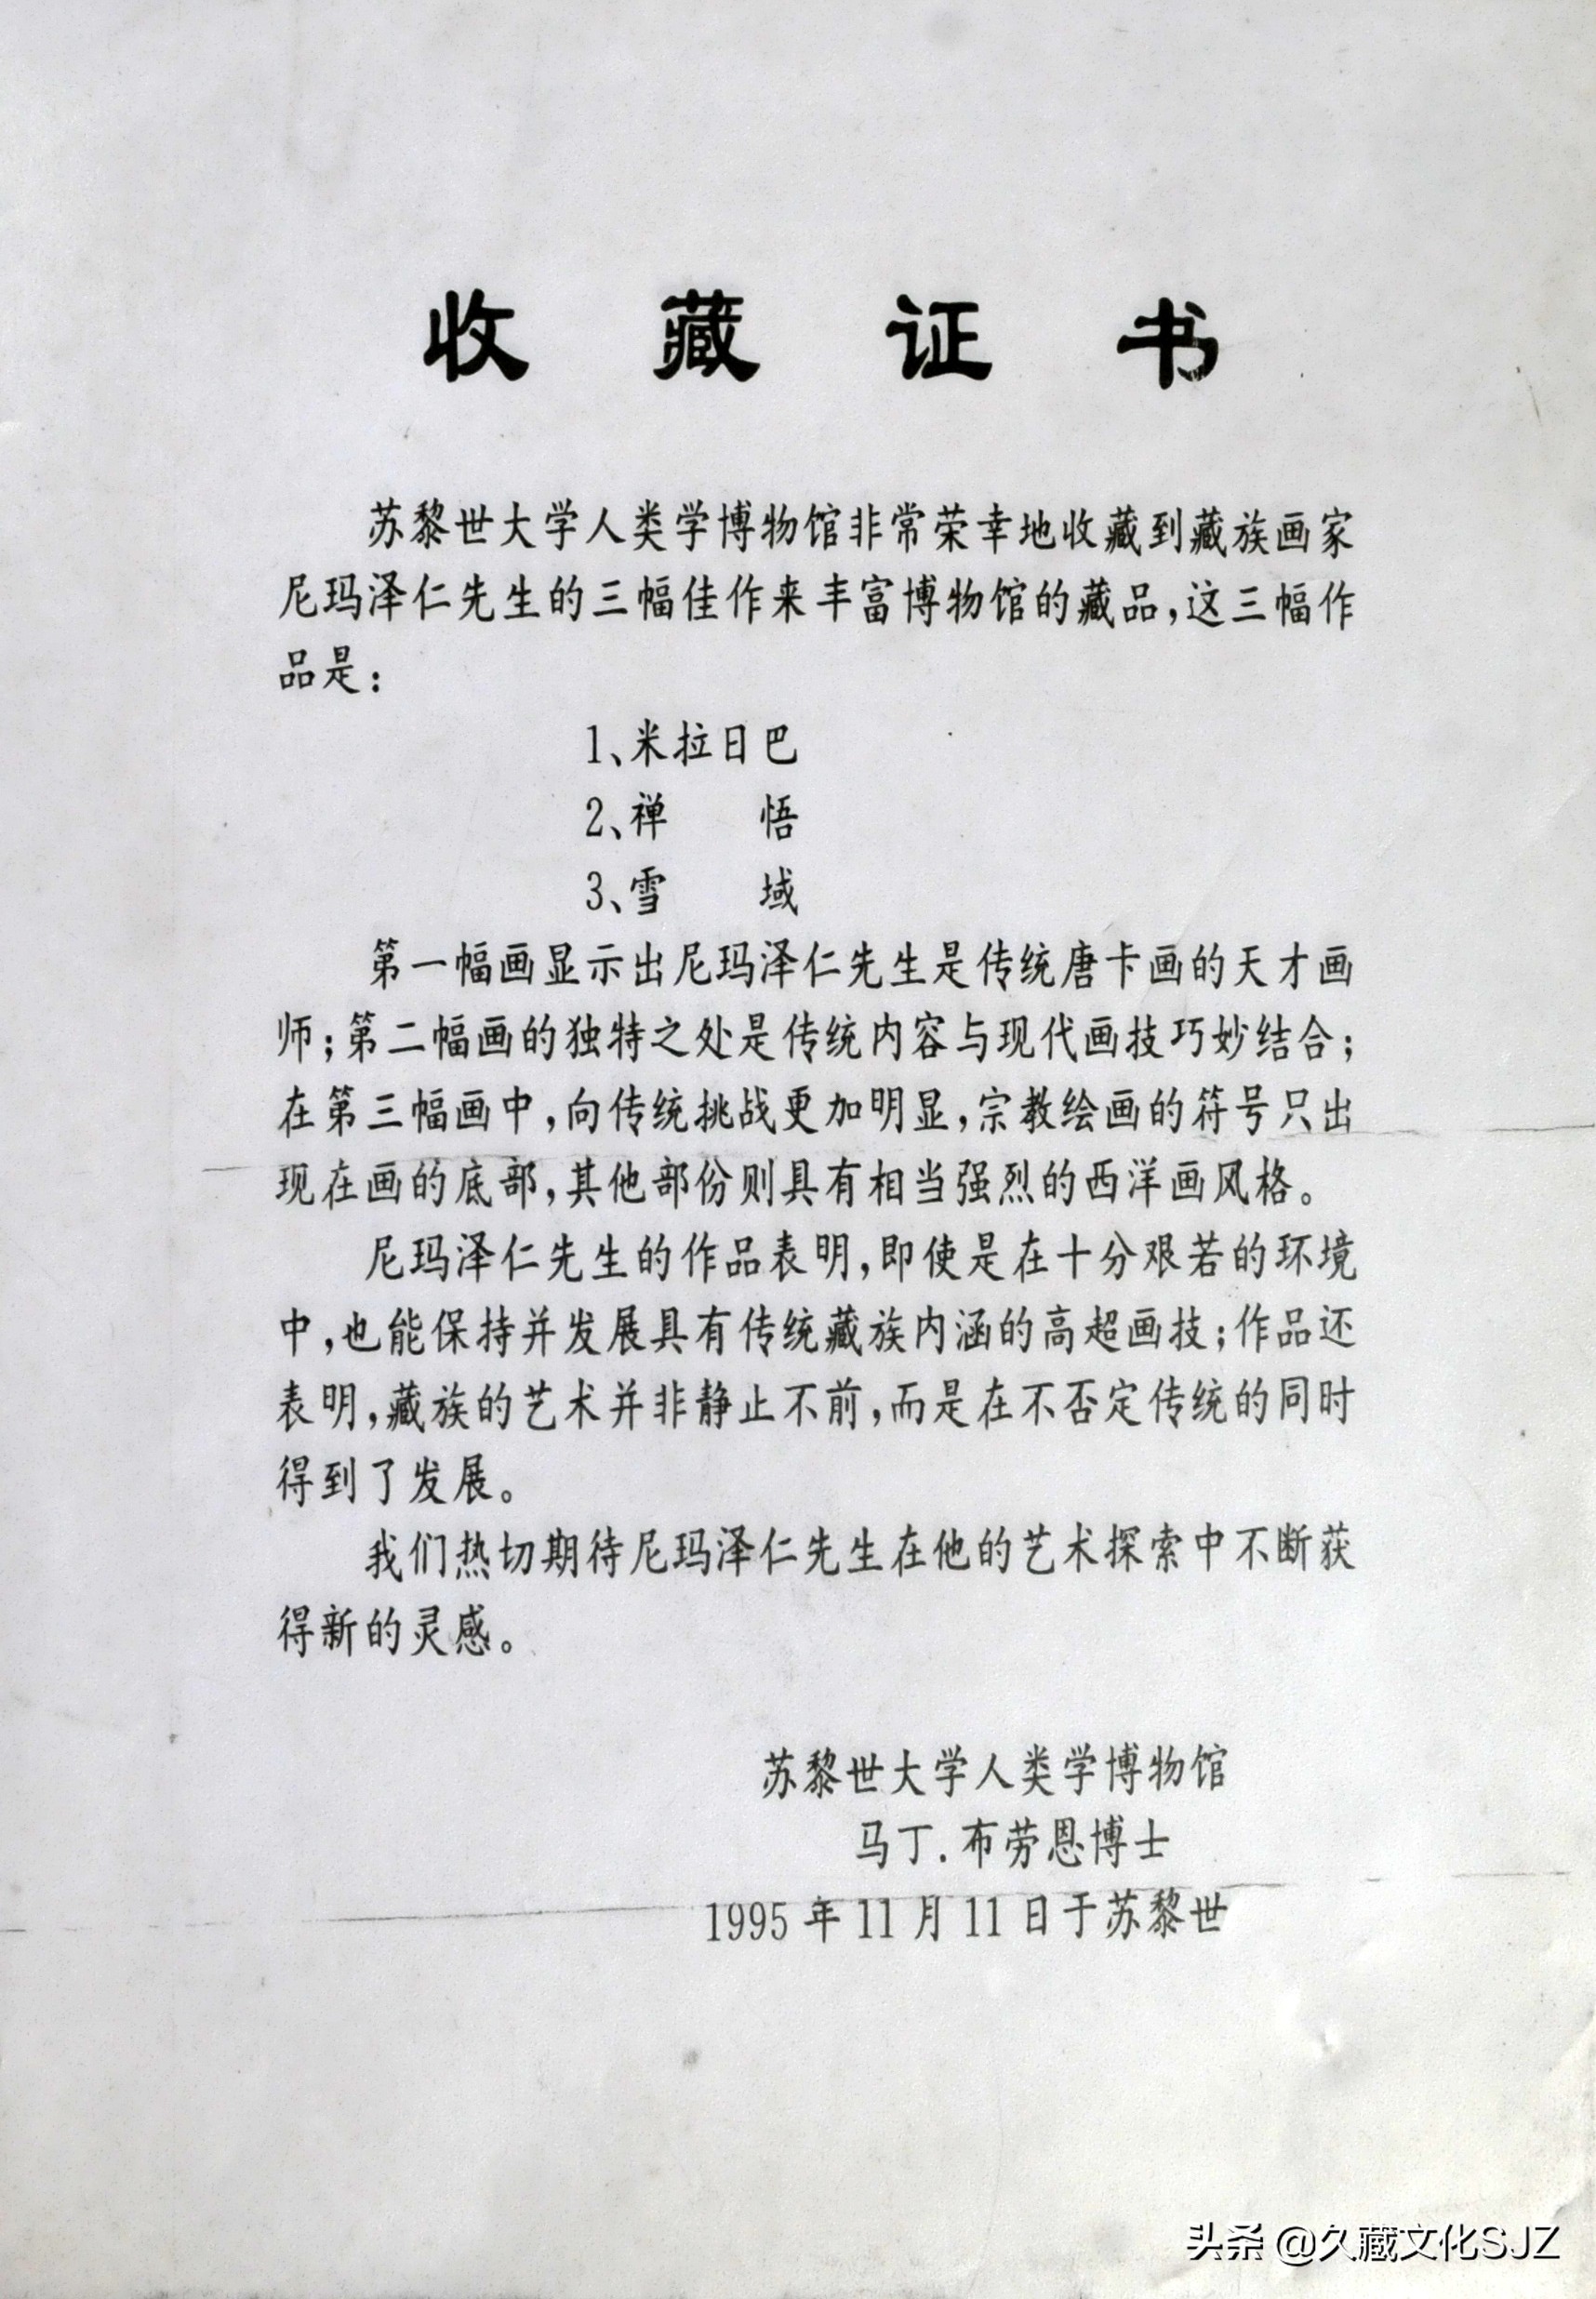 收藏证书
苏黎世大学人类学博物馆非常荣幸地收藏到藏族画家
尼玛泽仁先生的三幅佳作来丰富博物馆的藏品,这三幅作
品是:
1、米拉日巴
2、禅 悟
3、雪 域
第一幅画显示出尼玛泽仁先生是传统唐卡画的天才画
师;第二幅画的独特之处是传统内容与现代画技巧妙结合;
在第三幅画中,向传统挑战更加明显,宗教绘画的符号只出
现在画的底部,其他部份则具有相当强烈的西洋画风格。
尼玛泽仁先生的作品表明,即使是在十分艰若的环境
中,也能保持并发展具有传统藏族内涵的高超画技;作品还
表明,藏族的艺术并非静止不前,而是在不否定传统的同时
得到了发展。
我们热切期待尼玛泽仁先生在他的艺术探索中不断获
得新的灵感。
苏黎世大学人类学博物馆
马丁.布劳恩博士
1995年11月11日于苏黎世
头条 @久藏文化SJZ